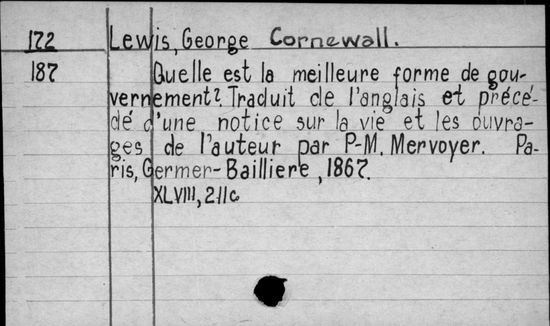 172 Lewis, George Cornewall.
187 Quelle est la meilleure forme de gou-
vernement? Traduit de l'anglais et précé-
dé d'une notice sur la vie et les ouvra-
ges de l'auteur par P-M. Mervoyer. Pa-
ris, Germer-Bailliere, 1867.
XLVIII, 211c